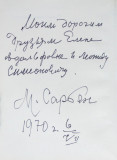 Моим дорогим
друзьям Елене
Адольфовне и Матвею
Симоновичу.
М. Сарьян
1970 г. 6/VII